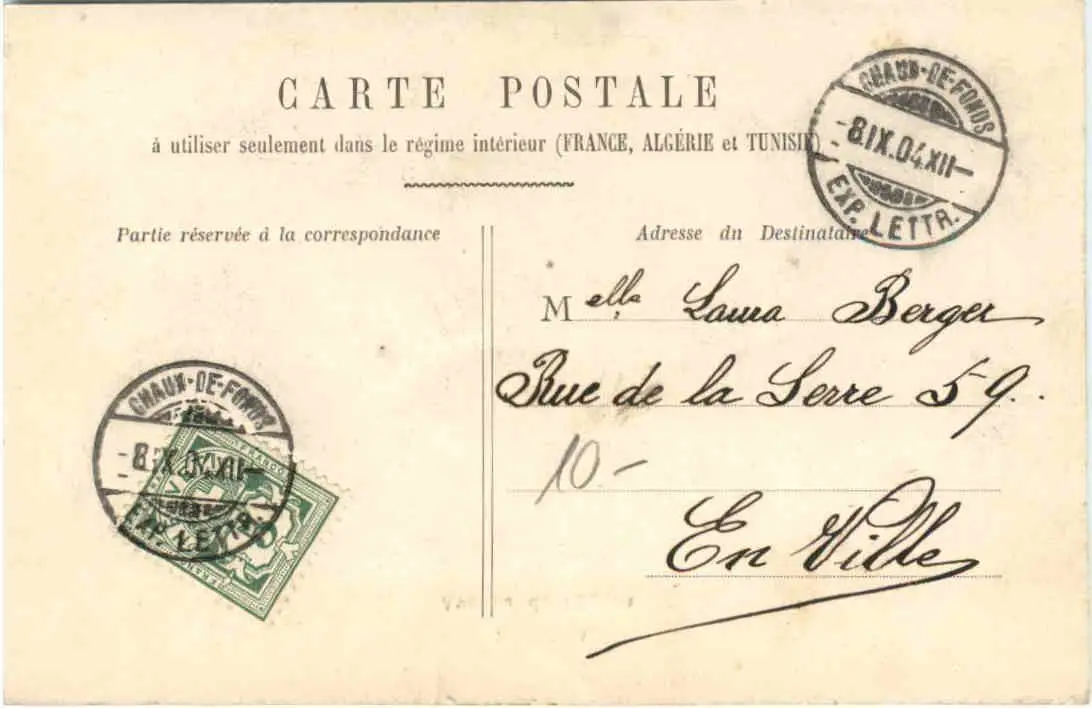 CARTE POSTALE
à utiliser seulement dans le régime intérieur (FRANCE, ALGÉRIE et TUNISIE)
CHAUX-DE-FONDS
-8.IX.04.XII-
EXP. LETTR.
Partie réservée à la correspondance
Adresse du Destinataire
Melle Laura Berger
Rue de la Serre 59.
10-
En Ville
CHAUX-DE-FONDS
-8.IX.04.XII-
EXP. LETTR.
FRANCO
5